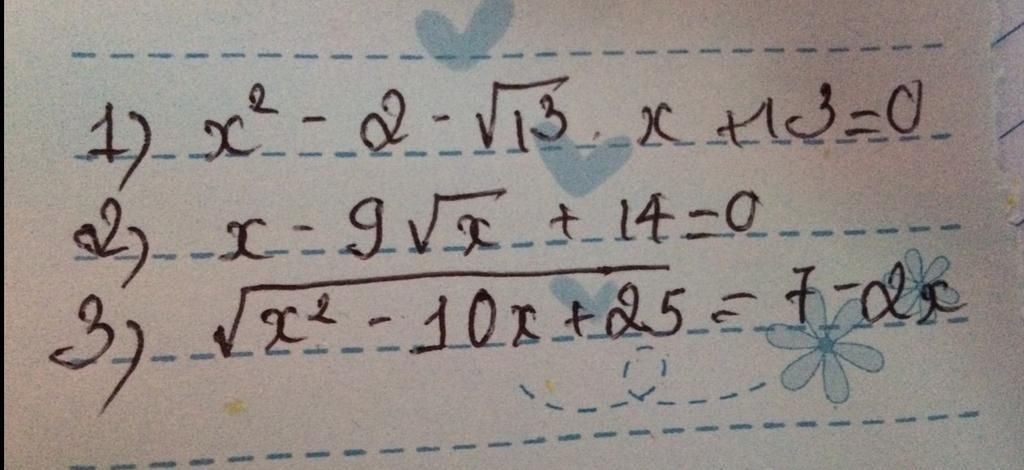 1) x² - 2 - √13 . x + 13 = 0
2) x - 9√x + 14 = 0
3) √(x² - 10x + 25) = 7 - 2x